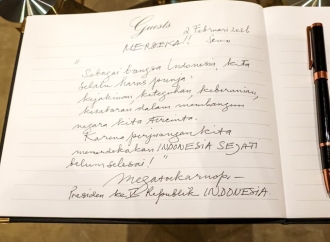 Guests
2 Februari 2026
Senin
MERDEKA!!
"Sebagai bangsa Indonesia, kita
selalu harus punya:
keyakinan, keteguhan, keberanian,
kesabaran dalam membangun
negara kita tercinta.
Karena perjuangan kita
memerdekakan INDONESIA SEJATI
belum selesai!"
Presiden ke V Republik INDONESIA